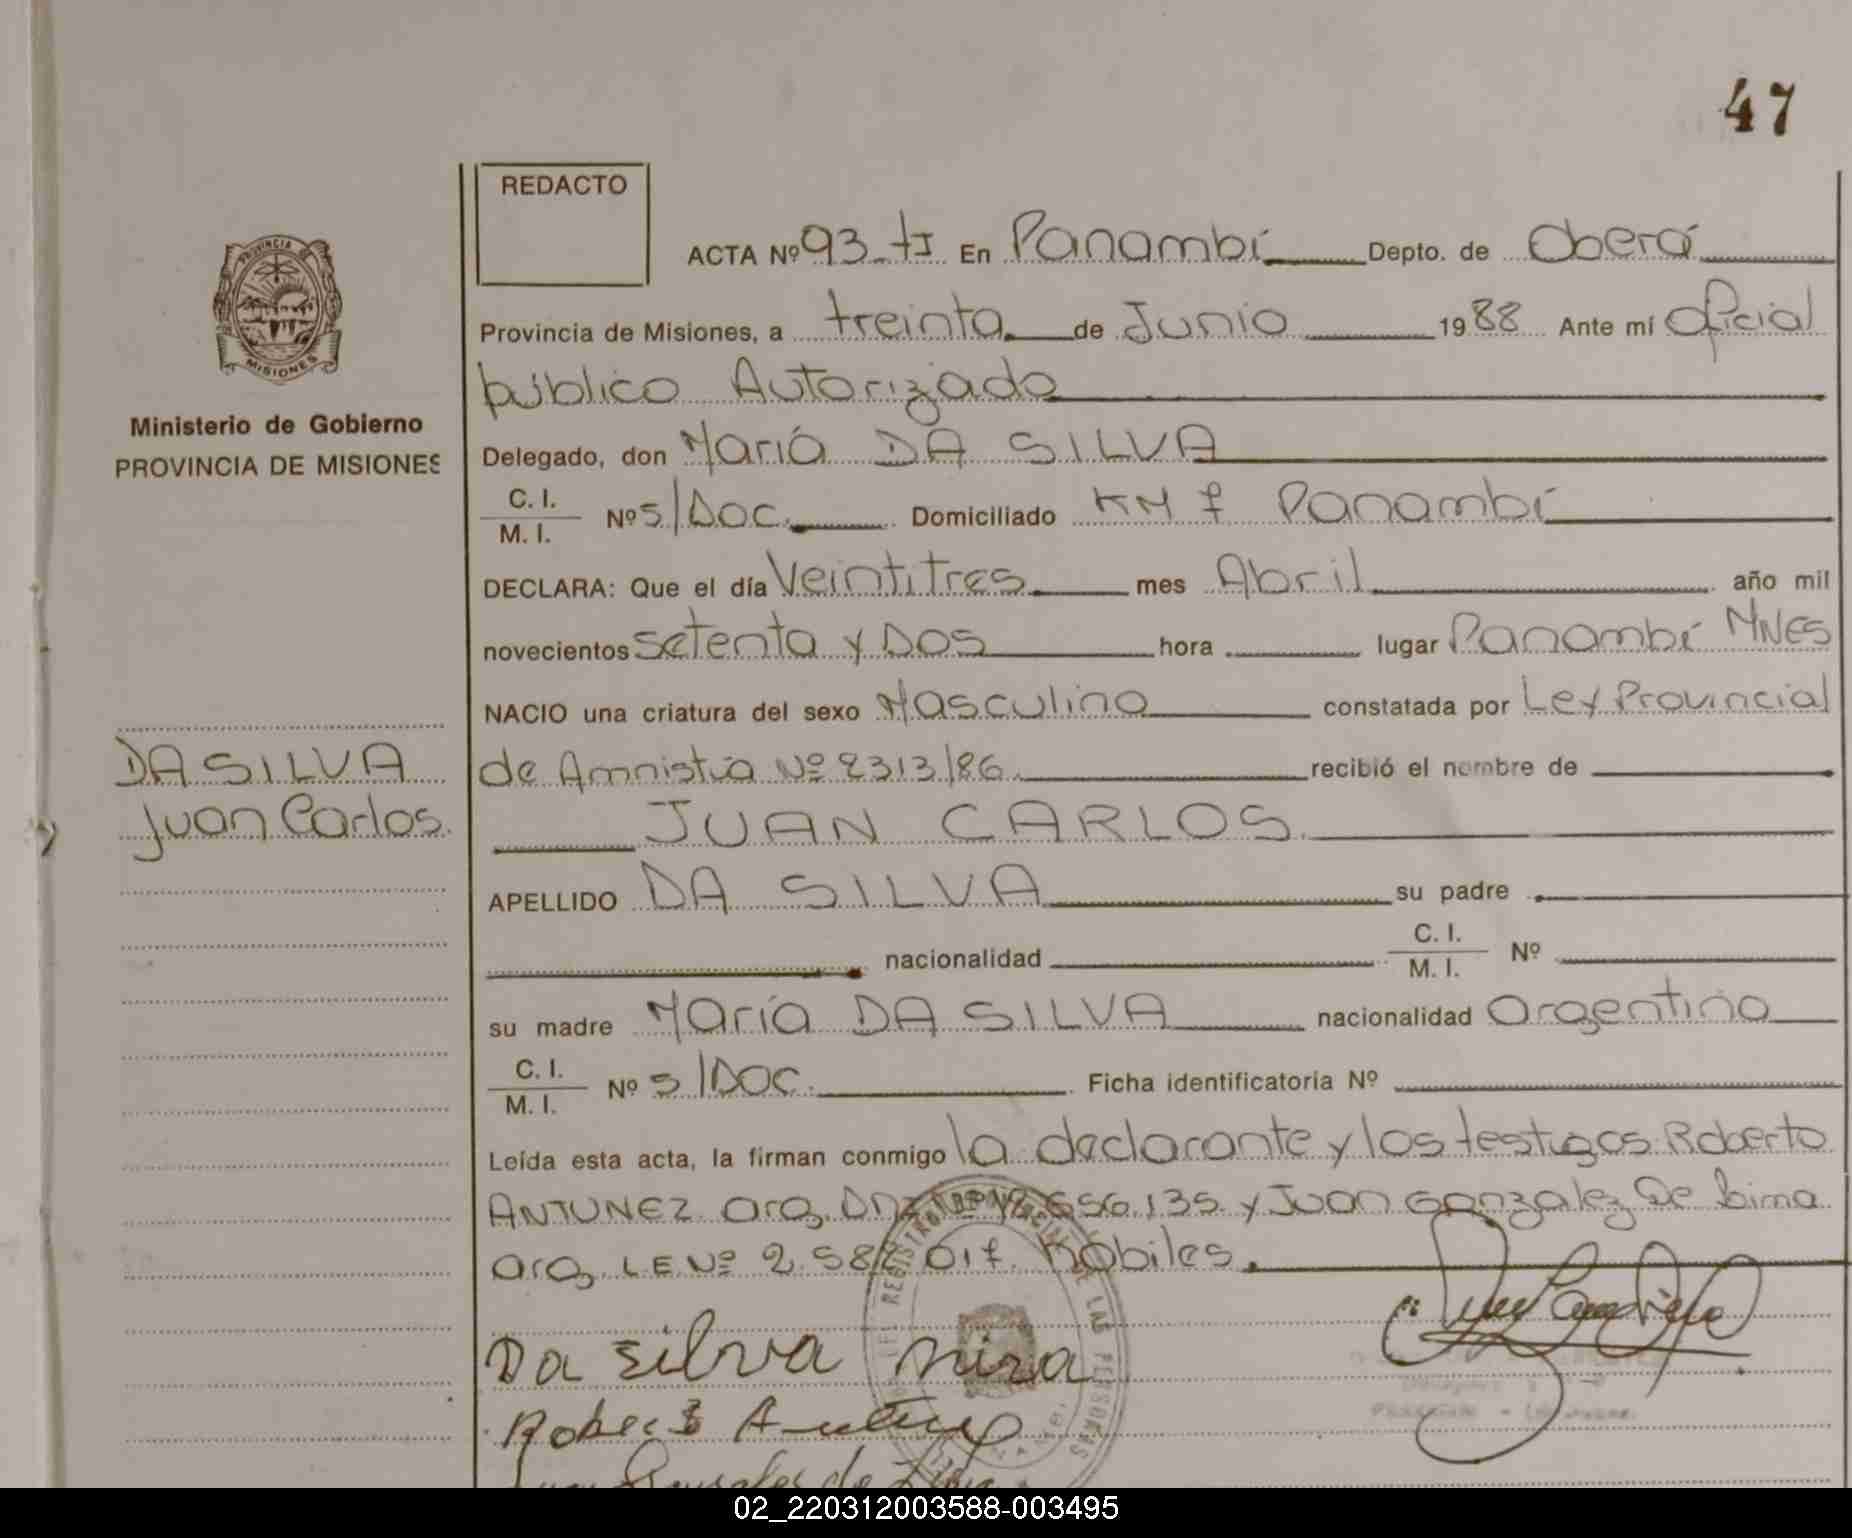 47
REDACTO
ACTA Nº 93 tI En Panambí Depto. de Oberá
Provincia de Misiones, a treinta de Junio 1988 Ante mí Oficial
público Autorizado
Ministerio de Gobierno
PROVINCIA DE MISIONES
Delegado, don María DA SILVA
C. I.
M. I. Nº S/Doc. Domiciliado KM 7 Panambí
DECLARA: Que el día Veintitres mes Abril año mil
novecientos setenta y Dos hora lugar Panambí MNES
NACIO una criatura del sexo Masculino constatada por Ley Provincial
DA SILVA
Juan Carlos.
de Amnistía Nº 2313/86 recibió el nombre de
JUAN CARLOS.
APELLIDO DA SILVA su padre
nacionalidad C. I.
M. I. Nº
su madre María DA SILVA nacionalidad argentina
C. I.
M. I. Nº S/DOC. Ficha identificatoria Nº
Leída esta acta, la firman conmigo la declarante y los testigos Roberto
ANTUNEZ arg. Nº 656.135 y Juan Gonzalez De Lima
arg. LE Nº 2.588.017. Hábiles.
Da silva
Robert
PROVINCIA
MISIONES
REGISTRO LAS PERSONAS
02_220312003588-003495